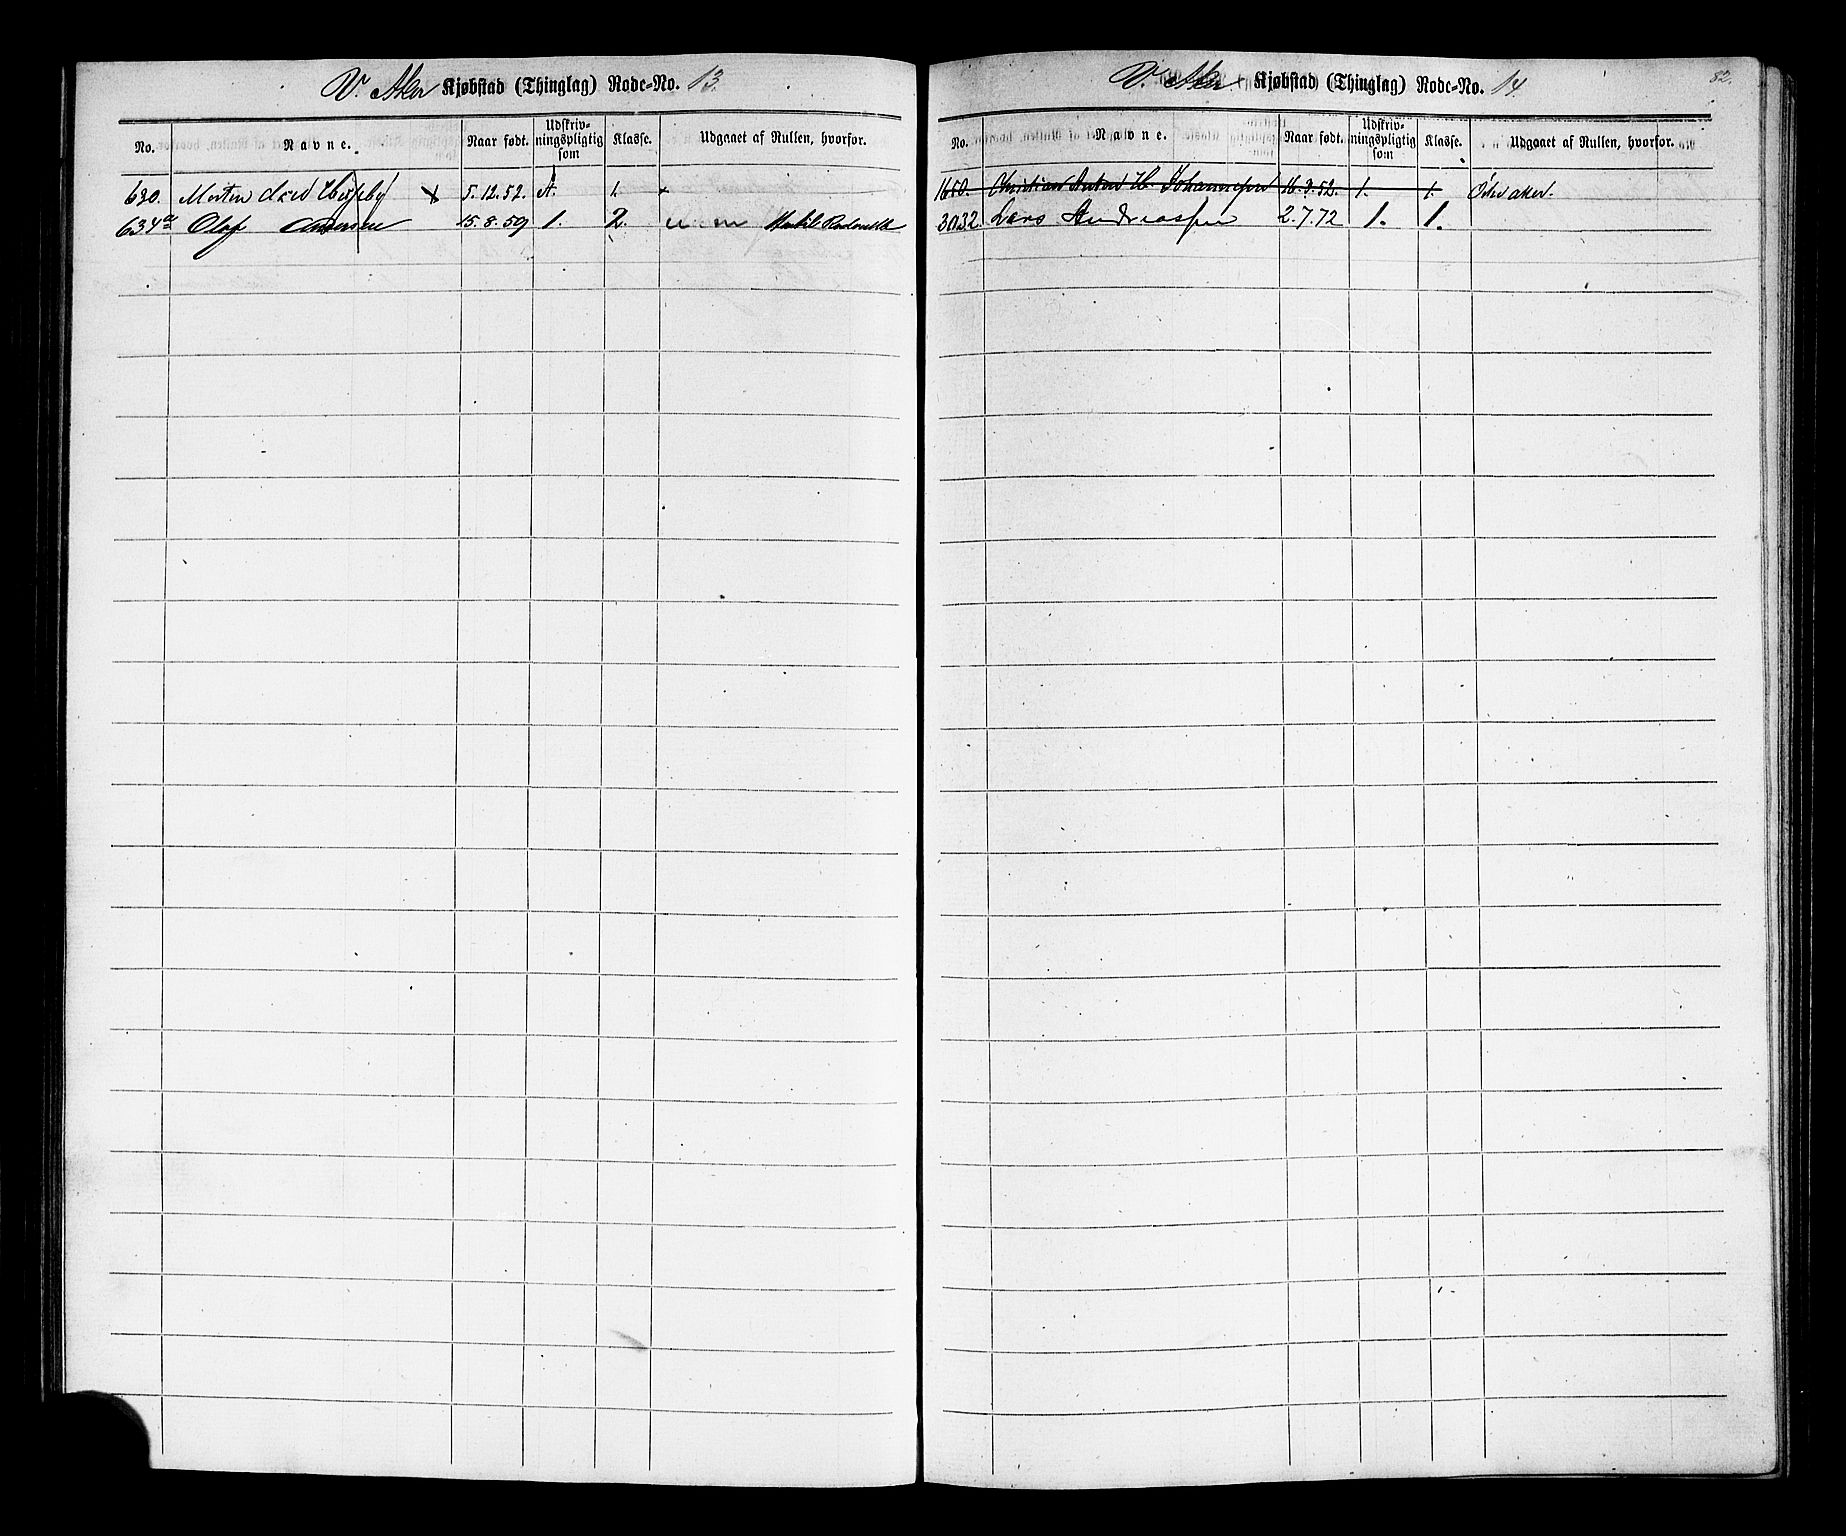 V. Aker Kjøbstad (Thinglag) Rode-No. 13.
No. Navne. Naar født. Udskriv-ningspligtig som Klasse. Udgaaet af Rullen, hvorfor.
630. Morten 5.12.52. A. 1.
634a Olaf Andersen 15.8.59 1. 2.
82.
V. Aker Kjøbstad (Thinglag) Rode-No. 14.
No. Navne. Naar født. Udskriv-ningspligtig som Klasse. Udgaaet af Rullen, hvorfor.
1650. Christian Anton H. Johannessen 16.9.52. 1. 1. Østre Aker.
3032. Lars Andreassen 2.7.72 1. 1.